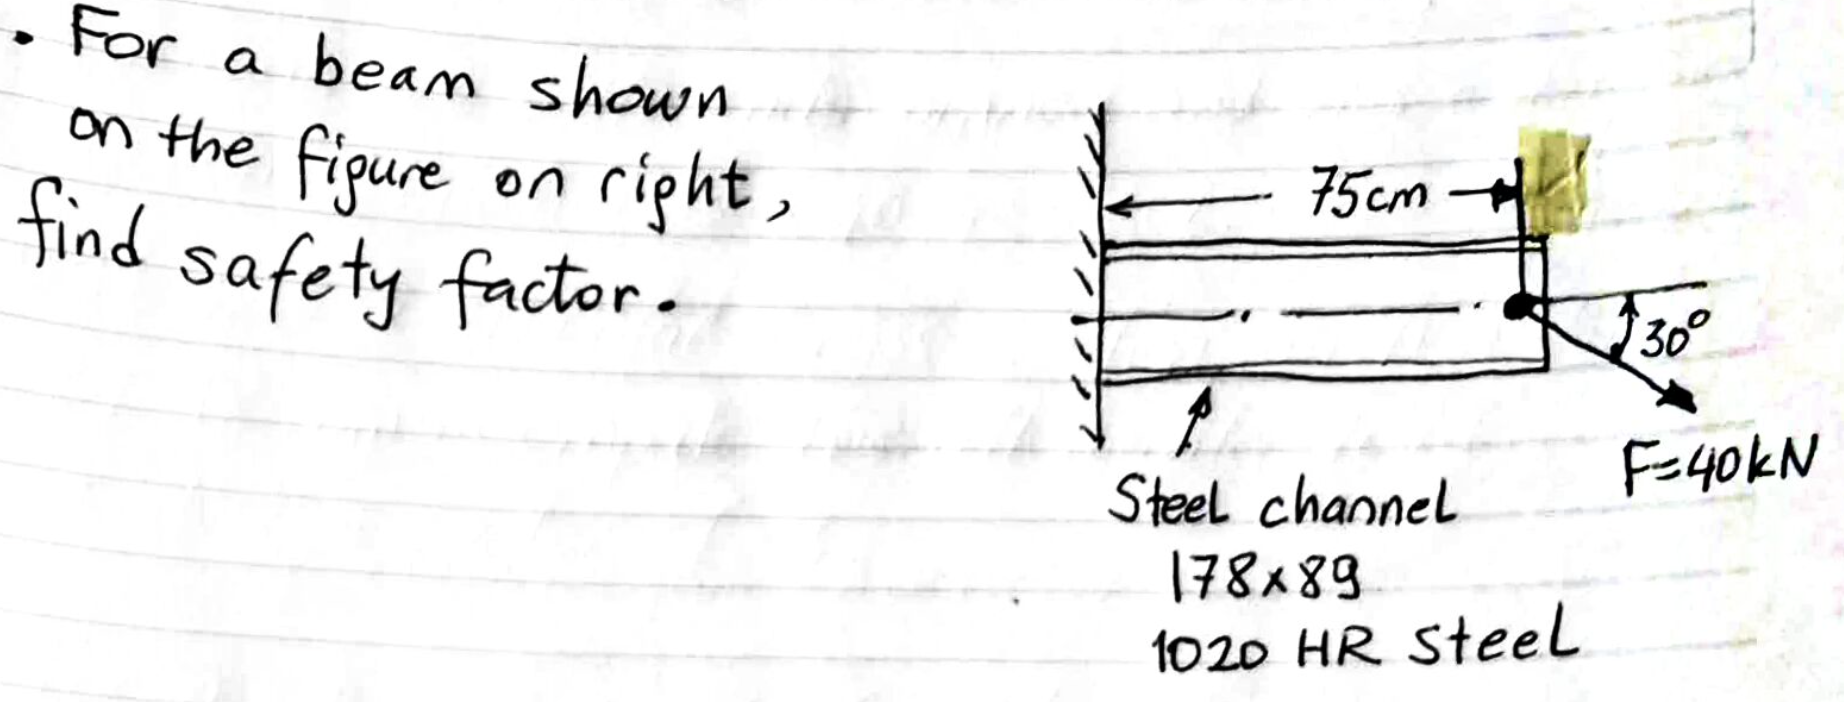 . For a beam shown
on the figure on right,
find safety factor.
75cm
30°
F=40kN
Steel channel
178x89
1020 HR Steel